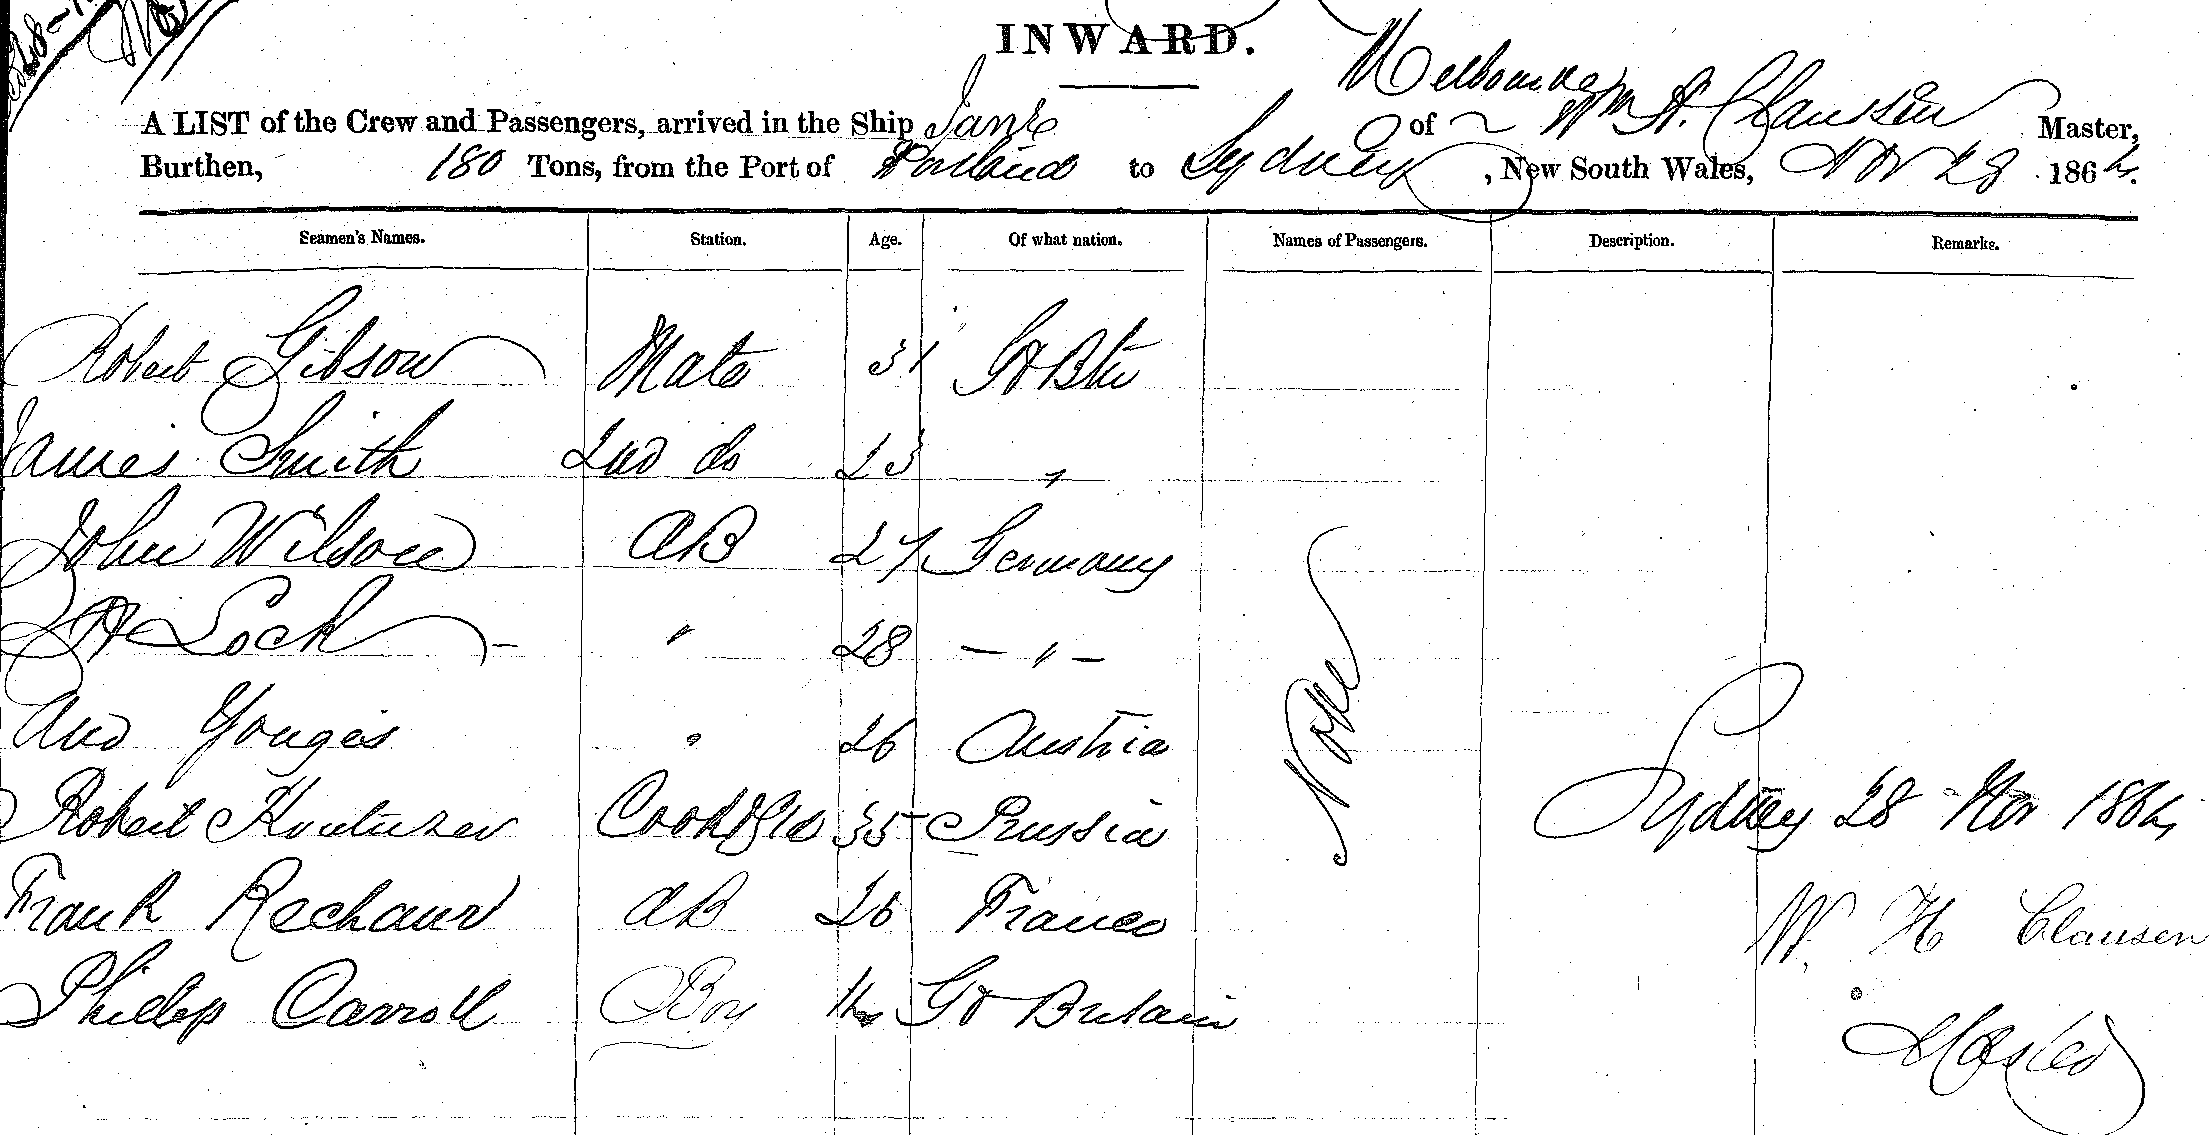 INWARD.
Melbourne
A LIST of the Crew and Passengers, arrived in the Ship Jane of Wm H. Clausen Master,
Burthen, 180 Tons, from the Port of Portland to Sydney, New South Wales, Nov 28 1864.
Seamen's Names. Station. Age. Of what nation. Names of Passengers. Description. Remarks.
Robert Gibson Mate 31 Gt Btn
James Smith 2nd do 23 "
John Wilson AB 27 Germany
H Lock " 28 — " —
And " 26 Austria
Robert Cook & 35 Prussia
Frank AB 26 France
Phillip Carroll Boy Gt Britain
None
Sydney 28 Nov 1864
W. H Clausen
Master